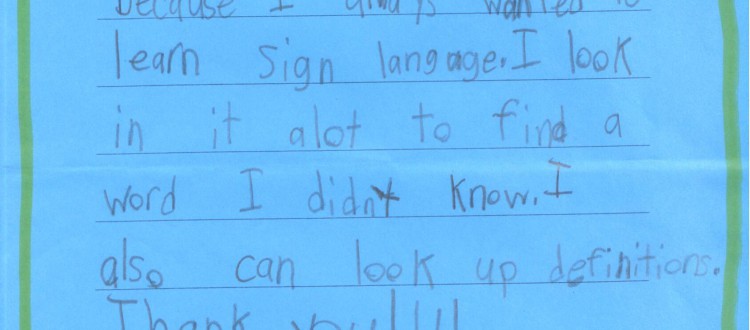 because I always wanted to
learn sign langage. I look
in it alot to find a
word I didnt know. I
also can look up definitions.
Thank you!!!!